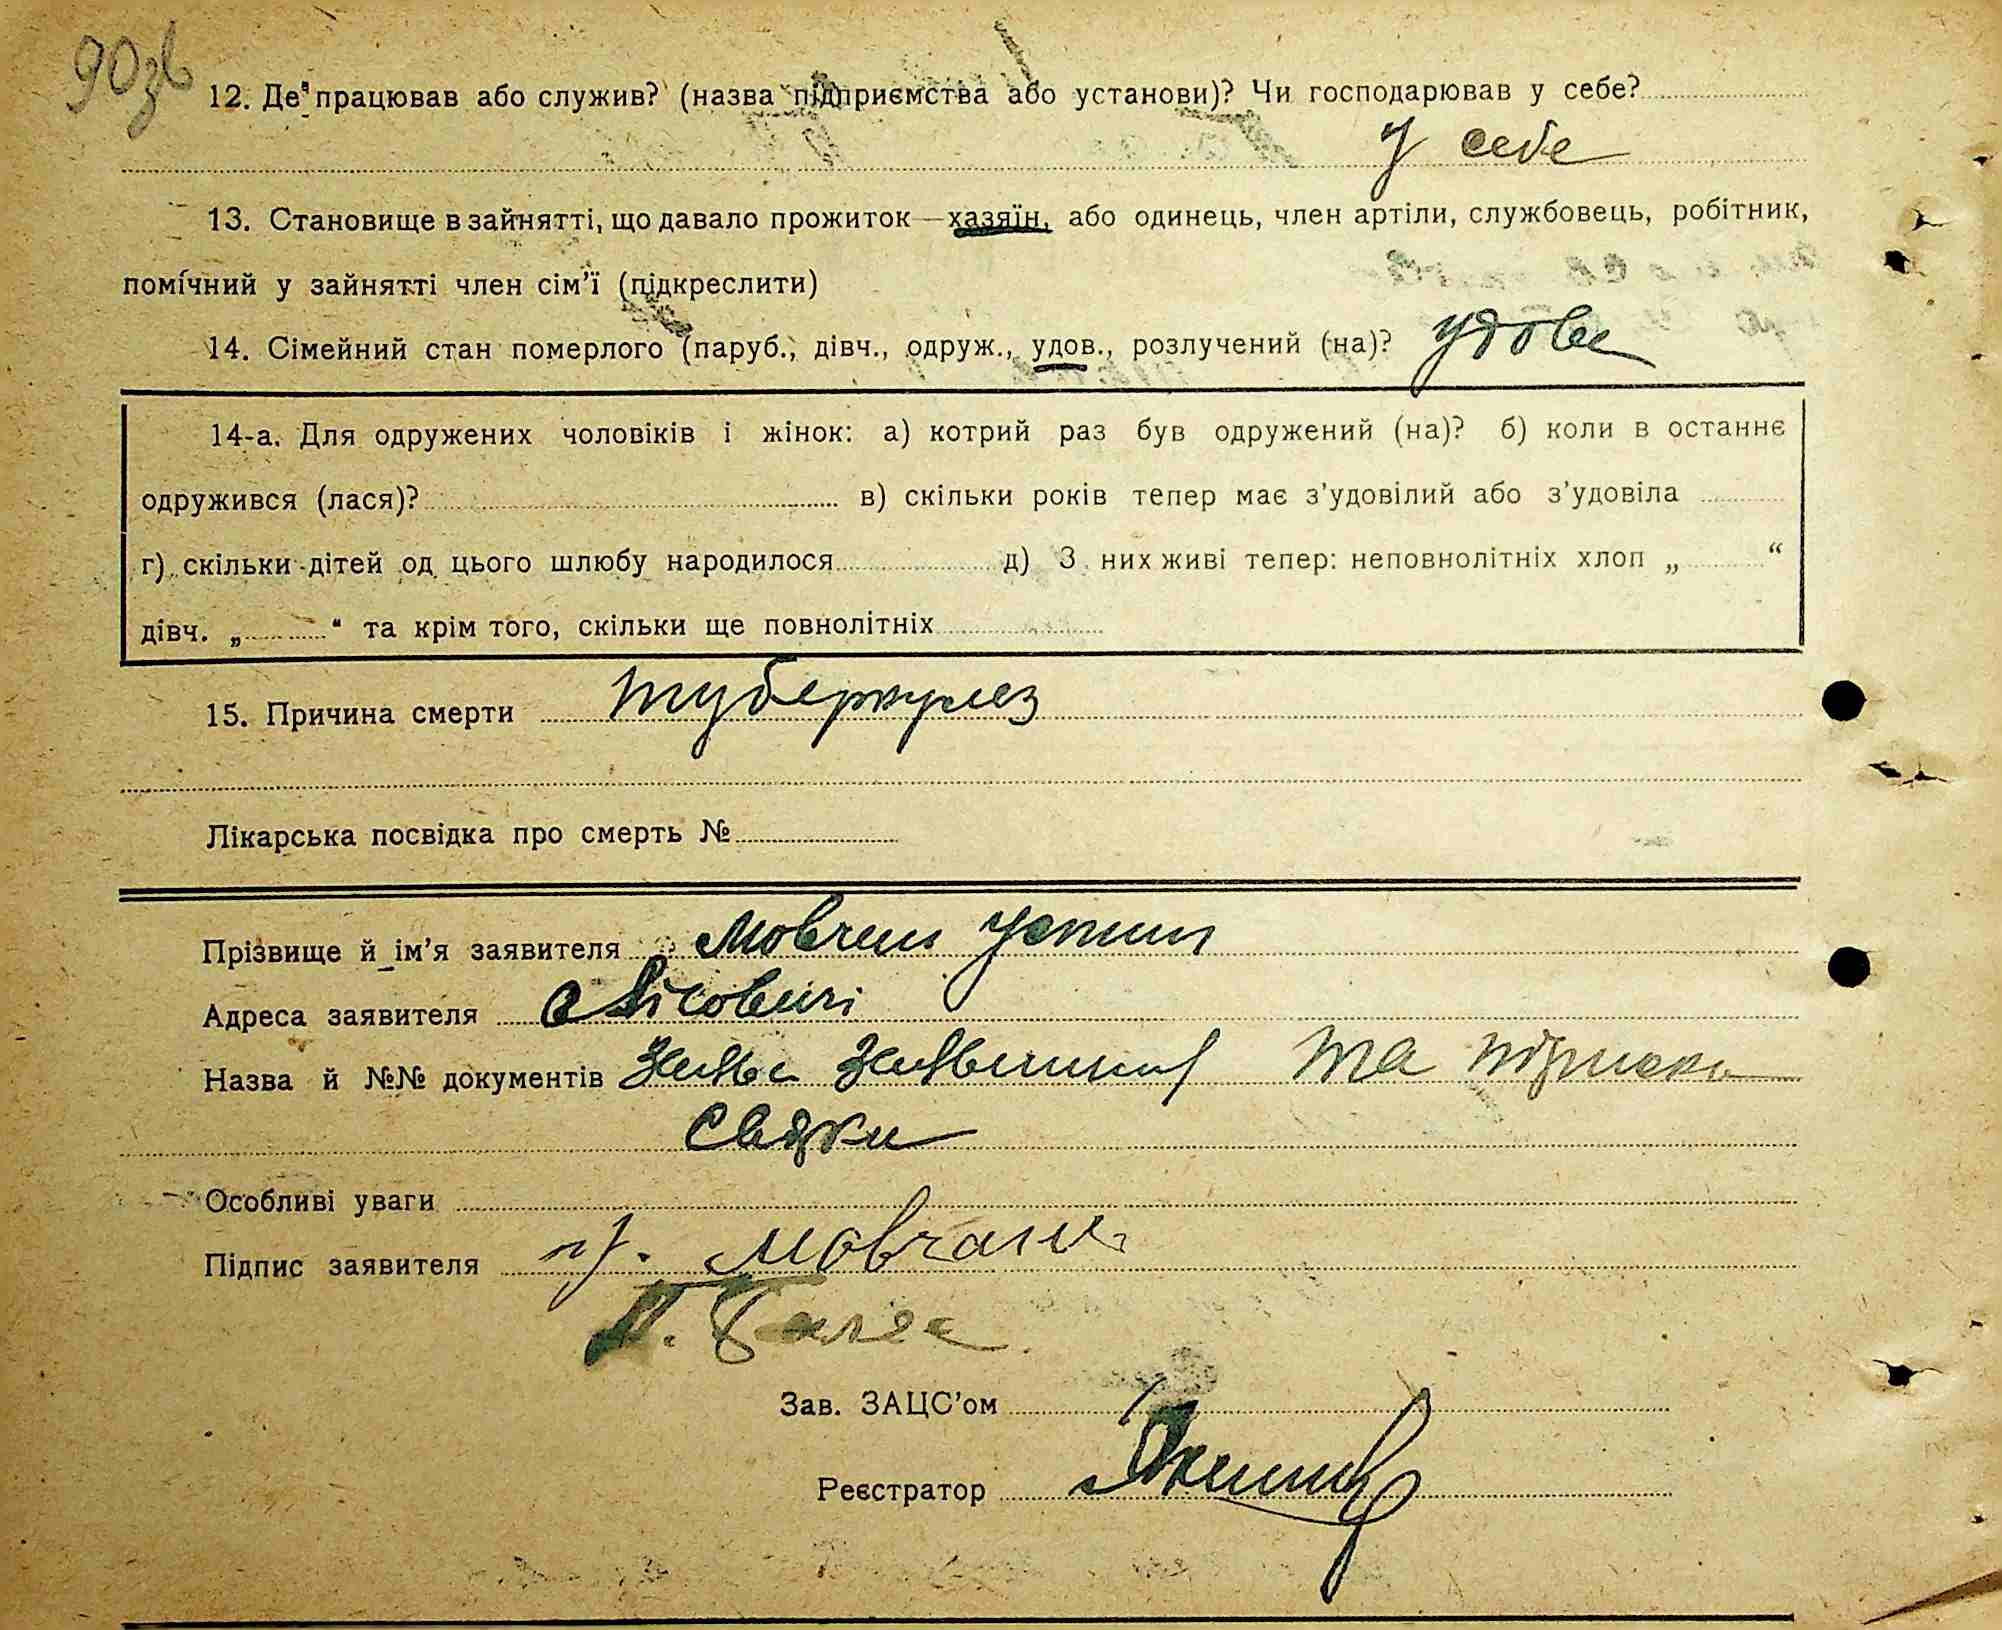 90зв
12. Де працював або служив? (назва підприємства або установи)? Чи господарював у себе?
У себе
13. Становище в зайнятті, що давало прожиток — хазяїн, або одинець, член артіли, службовець, робітник,
помічний у зайнятті член сім’ї (підкреслити)
14. Сімейний стан померлого (паруб., дівч., одруж., удов., розлучений (на)? удове
14-а. Для одружених чоловіків і жінок: а) котрий раз був одружений (на)? б) коли в останнє
одружився (лася)? в) скільки років тепер має з’удовілий або з’удовіла
г) скільки дітей од цього шлюбу народилося д) З них живі тепер: неповнолітніх хлоп „ “
дівч. „ “ та крім того, скільки ще повнолітніх
15. Причина смерти туберкулез
Лікарська посвідка про смерть №
Прізвище й ім’я заявителя Мовчан Устин
Адреса заявителя с Лісовичі
Назва й №№ документів Заява та підписка
свідки
Особливі уваги
Підпис заявителя У. Мовчан
Зав. ЗАЦС’ом
Реєстратор